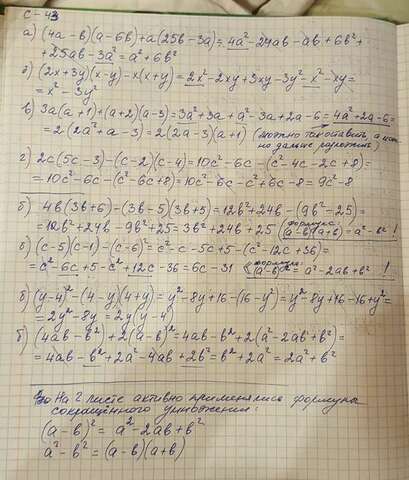 С-43
а) (4a-b)(a-6b)+a(25b-3a)=4a²-24ab-ab+6b²+
+25ab-3a²=a²+6b²
б) (2x+3y)(x-y)-x(x+y)=2x²-2xy+3xy-3y²-x²-xy=
=x²-3y²
в) 3a(a+1)+(a+2)(a-3)=3a²+3a+a²-3a+2a-6=4a²+2a-6=
=2(2a²+a-3)=2(2a-3)(a+1) (можно так оставить, а можно дальше разложить)
г) 2c(5c-3)-(c-2)(c-4)=10c²-6c-(c²-4c-2c+8)=
=10c²-6c-(c²-6c+8)=10c²-6c-c²+6c-8=9c²-8
б) 4b(3b+6)-(3b-5)(3b+5)=12b²+24b-(9b²-25)=
=12b²+24b-9b²+25=3b²+24b+25 (формула (a-b)(a+b)=a²-b²!
б) (c-5)(c-1)-(c-6)²=c²-c-5c+5-(c²-12c+36)=
=c²-6c+5-c²+12c-36=6c-31 (формула (a-b)²=a²-2ab+b²!
б) (y-4)²-(4-y)(4+y)=y²-8y+16-(16-y²)=y²-8y+16-16+y²=
=2y²-8y=2y(y-4)
б) (4ab-b²)+2(a-b)²=4ab-b²+2(a²-2ab+b²)=
=4ab-b²+2a²-4ab+2b²=b²+2a²=2a²+b²
На 2 листе активно применялись формулы
сокращённого умножения:
(a-b)²=a²-2ab+b²
a²-b²=(a-b)(a+b)